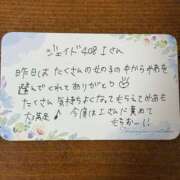 ジェイド408 Iさん
昨日は たくさんの女の子の中から かおを
選んでくれてありがとう
たくさん 気持ちよくなってもらえてかお
大満足♪ 今度はIさんに責めて
もらおー!!